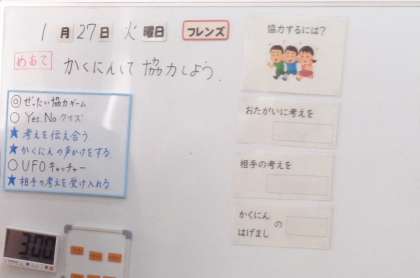 1月27日 火曜日 フレンズ
めあて かくにんして協力しよう。
◎ぜったい協力ゲーム
○Yes.Noクイズ
★考えを伝え合う
★かくにんの声かけをする
○UFOキャッチャー
★相手の考えを受け入れる
協力するには?
おたがいに考えを
相手の考えを
かくにん
はげまし
の
3:00